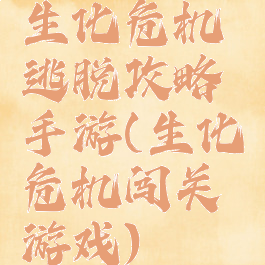 生化危机
逃脱攻略
手游(生化
危机闯关
游戏)